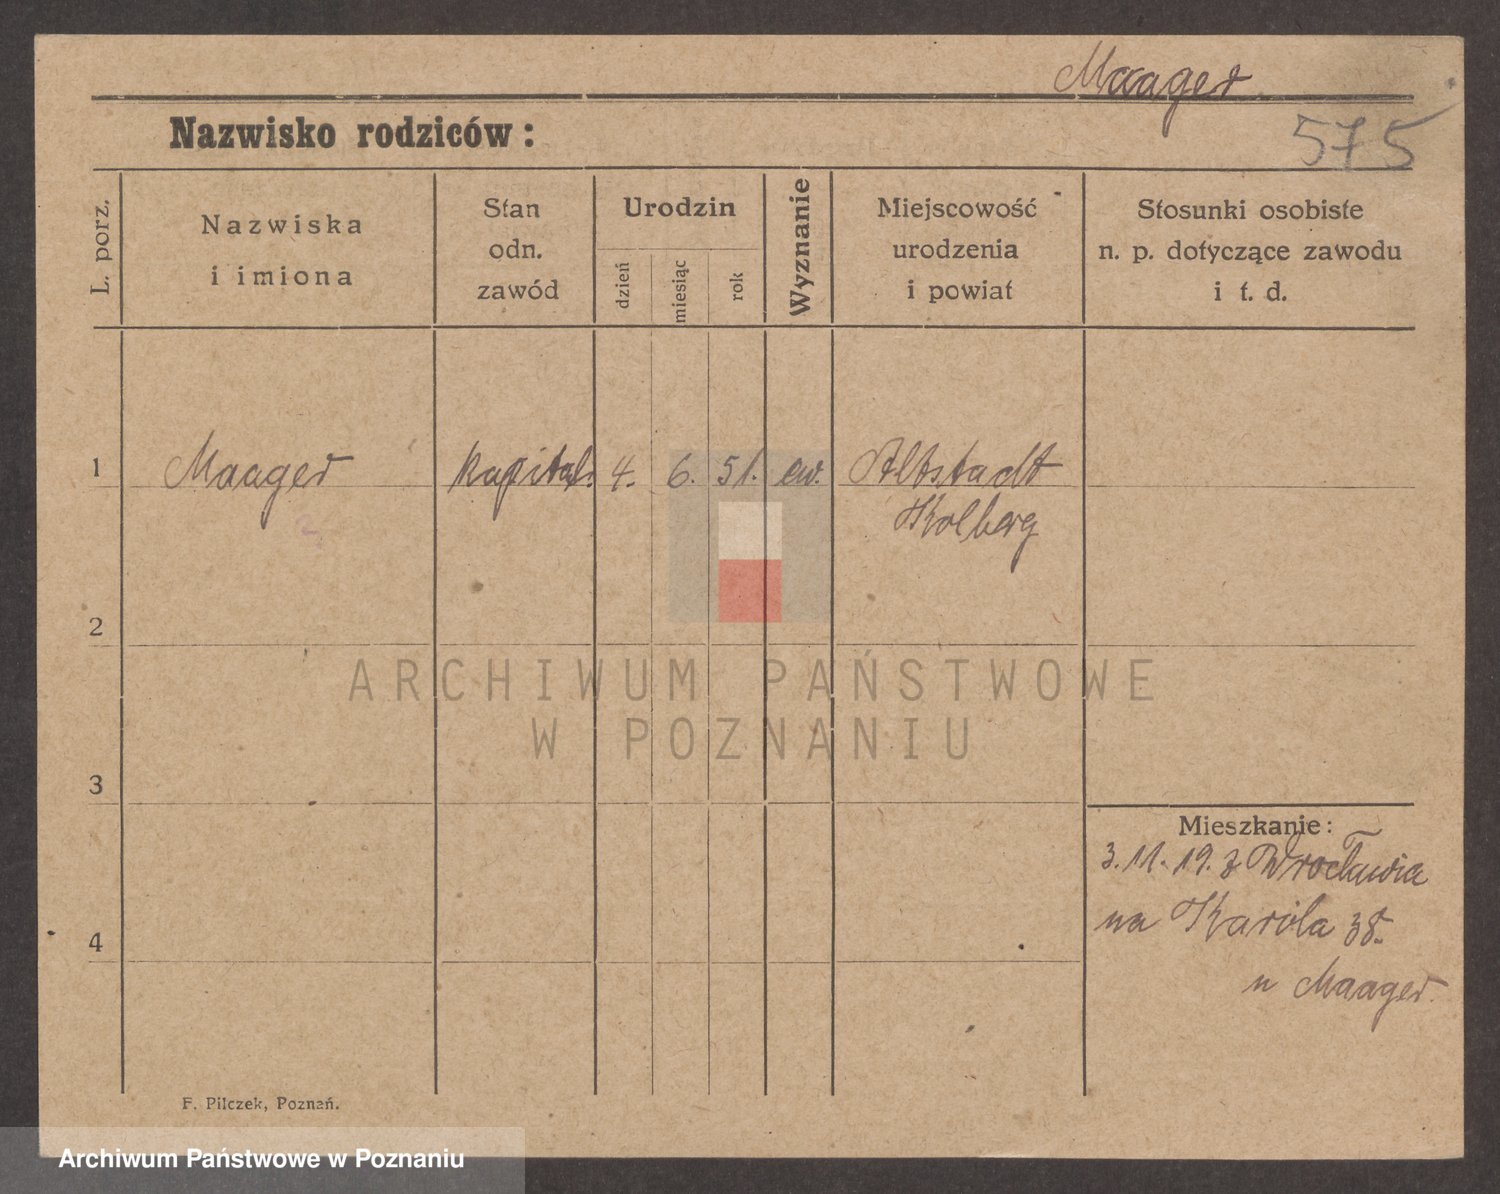 Maager
Nazwisko rodziców:
575
L. porz.
Nazwiska
i imiona
Stan
odn.
zawód
Urodzin
dzień
miesiąc
rok
Wyznanie
Miejscowość
urodzenia
i powiat
Stosunki osobiste
n. p. dotyczące zawodu
i t. d.
1
Maager
kapital. 4. 6. 51. ew. Altstadt
Kolberg
2
ARCHIWUM PAŃSTWOWE
W POZNANIU
3
Mieszkanie:
3.11.19. z Wrocławia
na Karola 38.
4
u Maager.
F. Pilczek, Poznań.
Archiwum Państwowe w Poznaniu